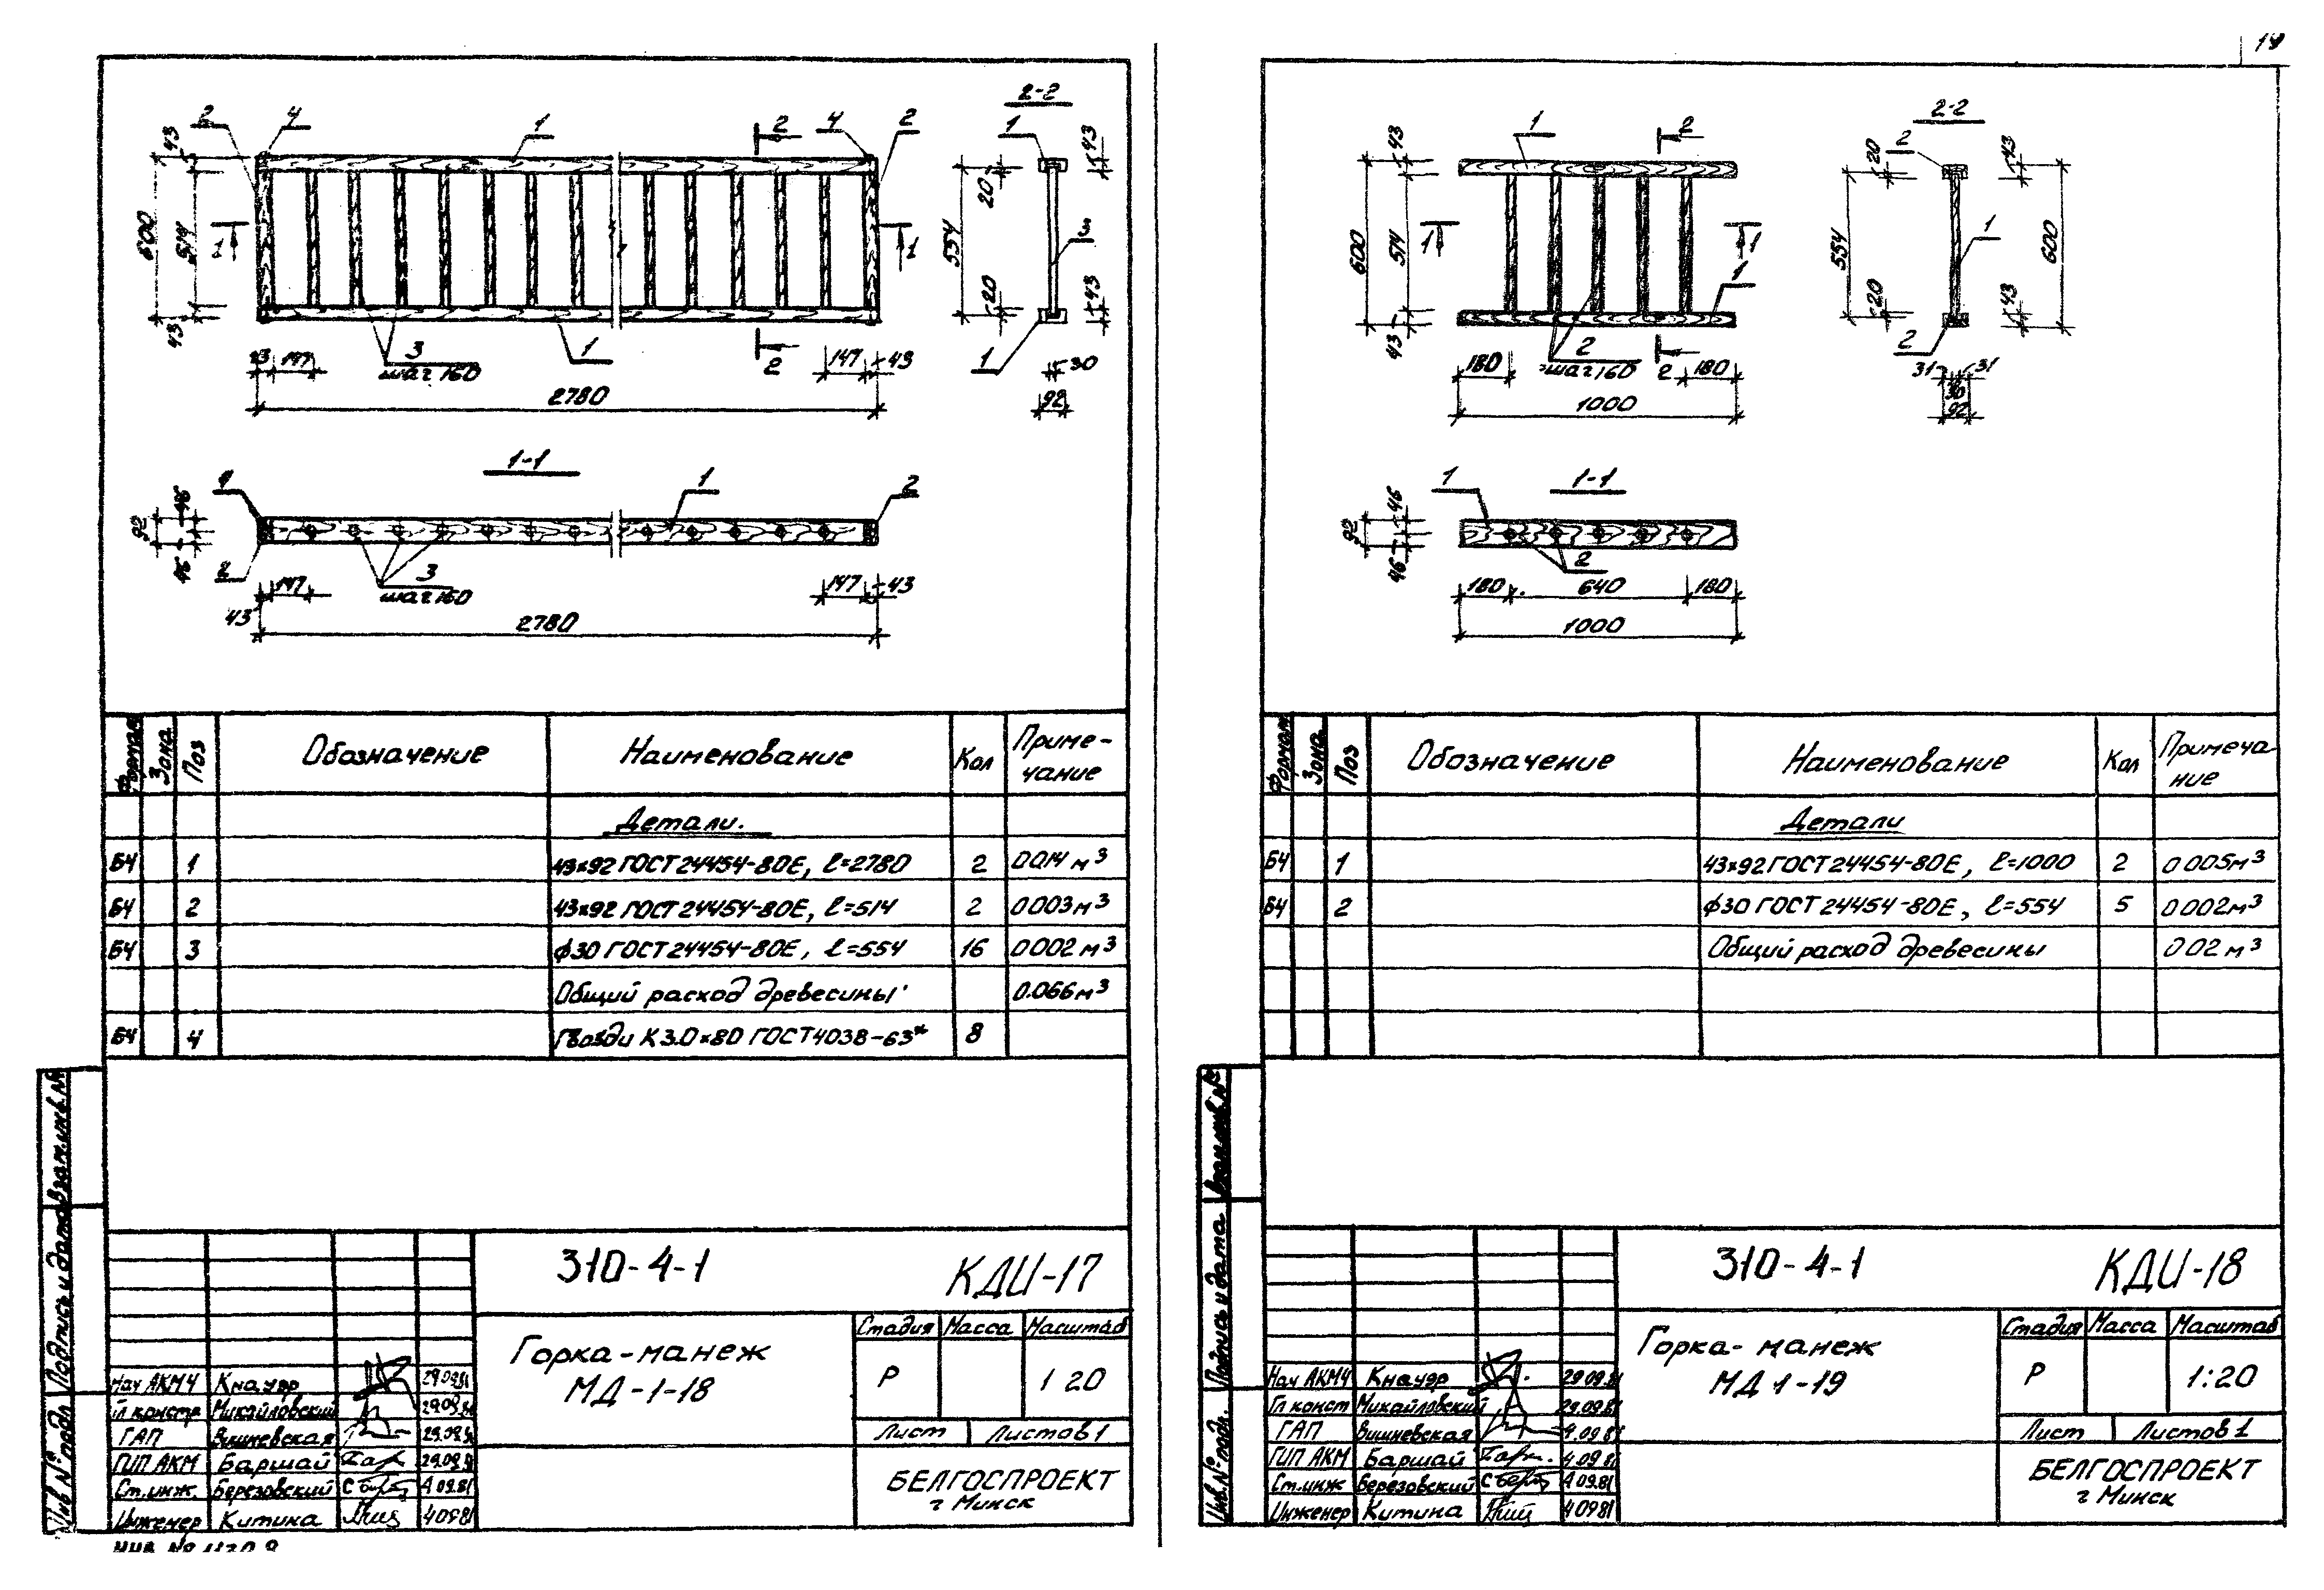 19
2 4 1 2 4 2
43 600 514 43
1 1
43 147 3 шаг 160 1 2 147 43
2780
2-2
1 43
554 20 3
20 43
1 30
92
1-1
4 1 2
46 92 46
2
147 3 шаг 160 147 43
43
2780
Формат Зона Поз Обозначение Наименование Кол Приме-
чание
Детали.
БЧ 1 43х92 ГОСТ 24454-80Е, ℓ=2780 2 0.014 м³
БЧ 2 43х92 ГОСТ 24454-80Е, ℓ=514 2 0.003 м³
БЧ 3 ф30 ГОСТ 24454-80Е, ℓ=554 16 0.002 м³
Общий расход древесины 0.066 м³
БЧ 4 Гвозди К 3.0×80 ГОСТ 4038-63* 8
Взам.инв.№
Подпись и дата
Инв № подл
310-4-1 КДИ-17
Горка-манеж
МД-1-18
Стадия Масса Масштаб
Р 1 20
Лист Листов 1
БЕЛГОСПРОЕКТ
г Минск
Нач АКМЧ Кнауэр 29.09.81
Гл констр Михайловский 29.09.81
ГАП Вишневская 29.09.81
ГИП АКМ Баршай 29.09.81
Ст.инж. Березовский 4 09.81
Инженер Китина 4 09 81
1 2
43 600 514 43
1 1
1
180 2 шаг 160 2 180
1000
2-2
20 2 43
554 1 600
20 43
2
31 30 31
92
1-1
1
46 92 46
2
180 640 180
1000
Формат Зона Поз Обозначение Наименование Кол Примеча
ние
Детали
БЧ 1 43х92 ГОСТ 24454-80Е, ℓ=1000 2 0.005 м³
БЧ 2 ф30 ГОСТ 24454-80Е, ℓ=554 5 0.002 м³
Общий расход древесины 0 02 м³
Взам.инв.№
Подпись и дата
Инв.№ подл.
310-4-1 КДИ-18
Горка-манеж
МД 1-19
Стадия Масса Масштаб
Р 1:20
Лист Листов 1
БЕЛГОСПРОЕКТ
г Минск
Нач АКМЧ Кнауэр 29 09.81
Гл конст Михайловский 29.09.81
ГАП Вишневская 4.09 81
ГИП АКМ Баршай 4.09 81
Ст.инж Березовский 4 09.81
Инженер Китина 4 09 81